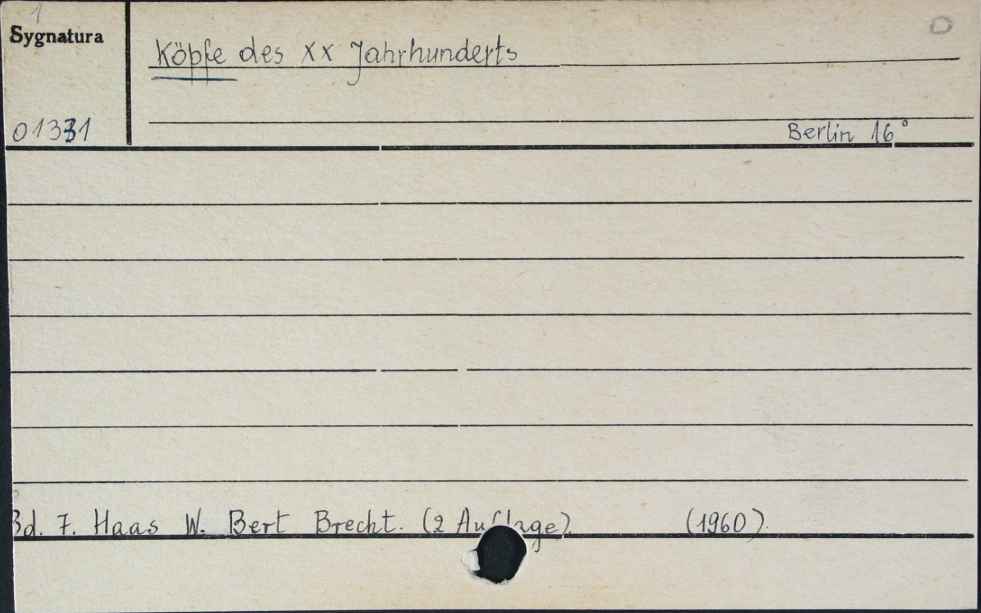 1
Sygnatura
Köpfe des XX Jahrhunderts
01331
Berlin 16°
Bd. 7. Haas W. Bert Brecht. (2 Auflage). (1960).